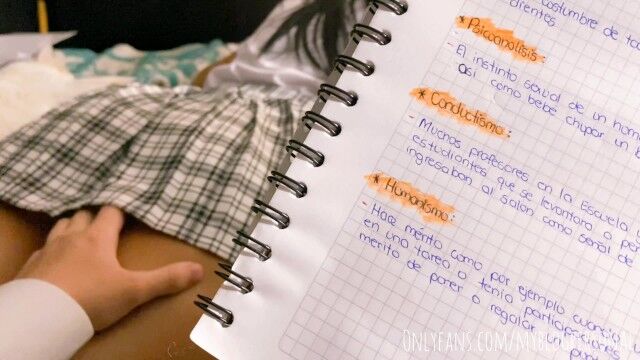 costumbre de
dientes
* Psicoanalisis:
- El instinto sexual de un
así como bebe chupar un
* Conductismo:
- Muchos profesores en la Escuela
estudiantes que se levantara o
ingresaban al salon como señal de
* Humanismo:
- Hace mérito como por ejemplo
en una tarea o tenia
merito de poner o regalar